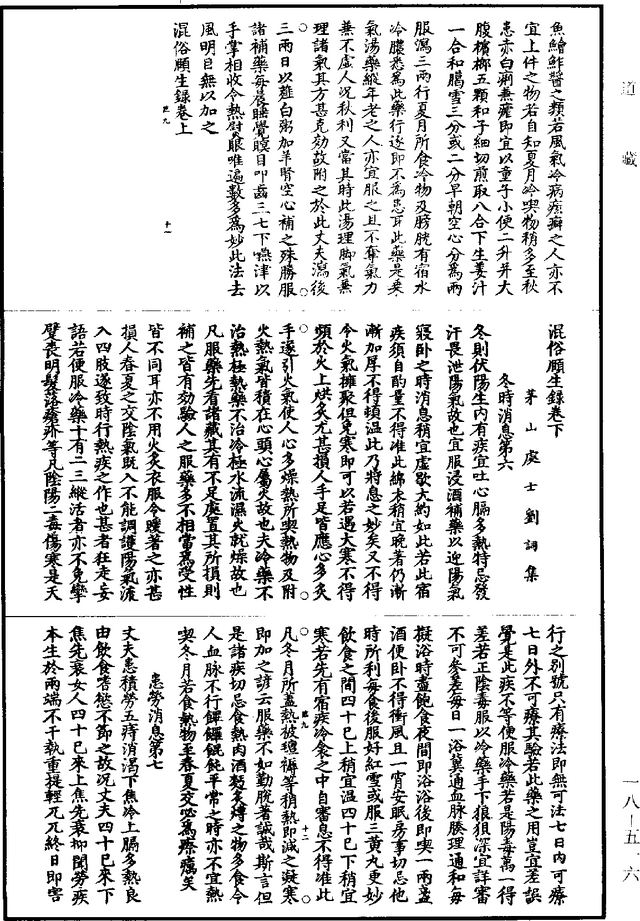 道藏
魚鱠鮓醬之類若風氣冷病痃癖之人亦不
宜上件之物若自知夏月冷喫物稍多至秋
患亦白痢兼瘧即宜以童子小便二升并大
腹檳榔五顆和子細切煎取八合下生薑汁
一合和臈雪三分或二分早朝空心分為兩
服瀉三兩行夏月所食冷物及膀胱有宿水
冷膿悉為此藥行逐即不為患耳此藥是乘
氣湯藥縱年老之人亦宜服之且不奪氣力
兼不虛人況秋利又當其時此湯理脚氣兼
理諸氣其方甚克効故附之於此丈夫瀉後
三兩日以薤白粥加羊腎空心補之殊勝服
諸補藥每晨睡覺瞑目叩齒三七下嚥津以
手掌相收令熱熨眼唯遍數多為妙此法去
風明目無以加之
混俗頤生錄卷上
混俗頤生錄卷下
茅山處士劉詞集
冬時消息第六
冬則伏陽生內有疾宜吐心膈多熱特忌發
汗畏泄陽氣故也宜服浸酒補藥以迎陽氣
寢卧之時消息稍宜虛歇大約如此若此宿
疾須自酌量不得准此綿衣稍宜晚著仍漸
漸加厚不得頓溫此乃將息之妙矣又不得
令火氣擁聚但免寒即可以若遇大寒不得
頻於火上烘炙尤甚損人手足皆應心多炙
手遂引火氣使人心多燥熱所喫熱物及附
火熱氣皆積在心頭心屬火故也夫冷藥不
治熱極熱藥不治冷極水流濕火就燥故也
凡服藥先看諸藏其有不足處置其所損則
補之皆有効驗人之服藥多不相當為受性
皆不同耳亦不用火炙衣服令暖著之亦甚
損人春夏之交陰氣既入不能調護陽氣流
入四肢遂致時行熱疾之作也甚者狂走妄
語若便服冷藥十有二三縱活者亦不免攣
躄喪明髮落瘡疥等凡陰陽二毒傷寒是天
行之別號只有療法即無可法七日內可療
七日外不可療其驗若此藥之用豈宜差誤
覺是此疾不等便服冷藥若是陽毒萬一得
差若正陰毒服以冷藥手下狼狽深宜詳審
不可參差每日一浴冀通血脉腠理通和每
擬浴時盡飽食夜間即浴浴後即喫一兩盞
酒便卧不得衝風且一宵安眠房事切忌他
時所利每食後服好紅雪或服三黃丸更妙
飲食之間四十巳上稍宜溫四十巳下稍宜
寒若先有宿疾冷汆之中自審息不得准此
凡冬月所蓋熱被氈褥等稍熱即減之凝寒
即加之諺云服藥不如勤脫著誠哉斯言但
是諸疾切忌食熱肉酒麪炙煿之物多食令
人血脉不行饆饠餛飩平常之時亦不宜熱
喫冬月若食熱物至春夏交必為瘵癘矣
患勞消息第七
丈夫患積勞五痔消渴下焦冷上膈多熱良
由飲食嗜慾不節之故況丈夫四十巳來下
焦先衰女人四十巳來上焦先衰抑聞勞疾
本生於兩端不干執重提輕兀兀終日即害
一八-五一六